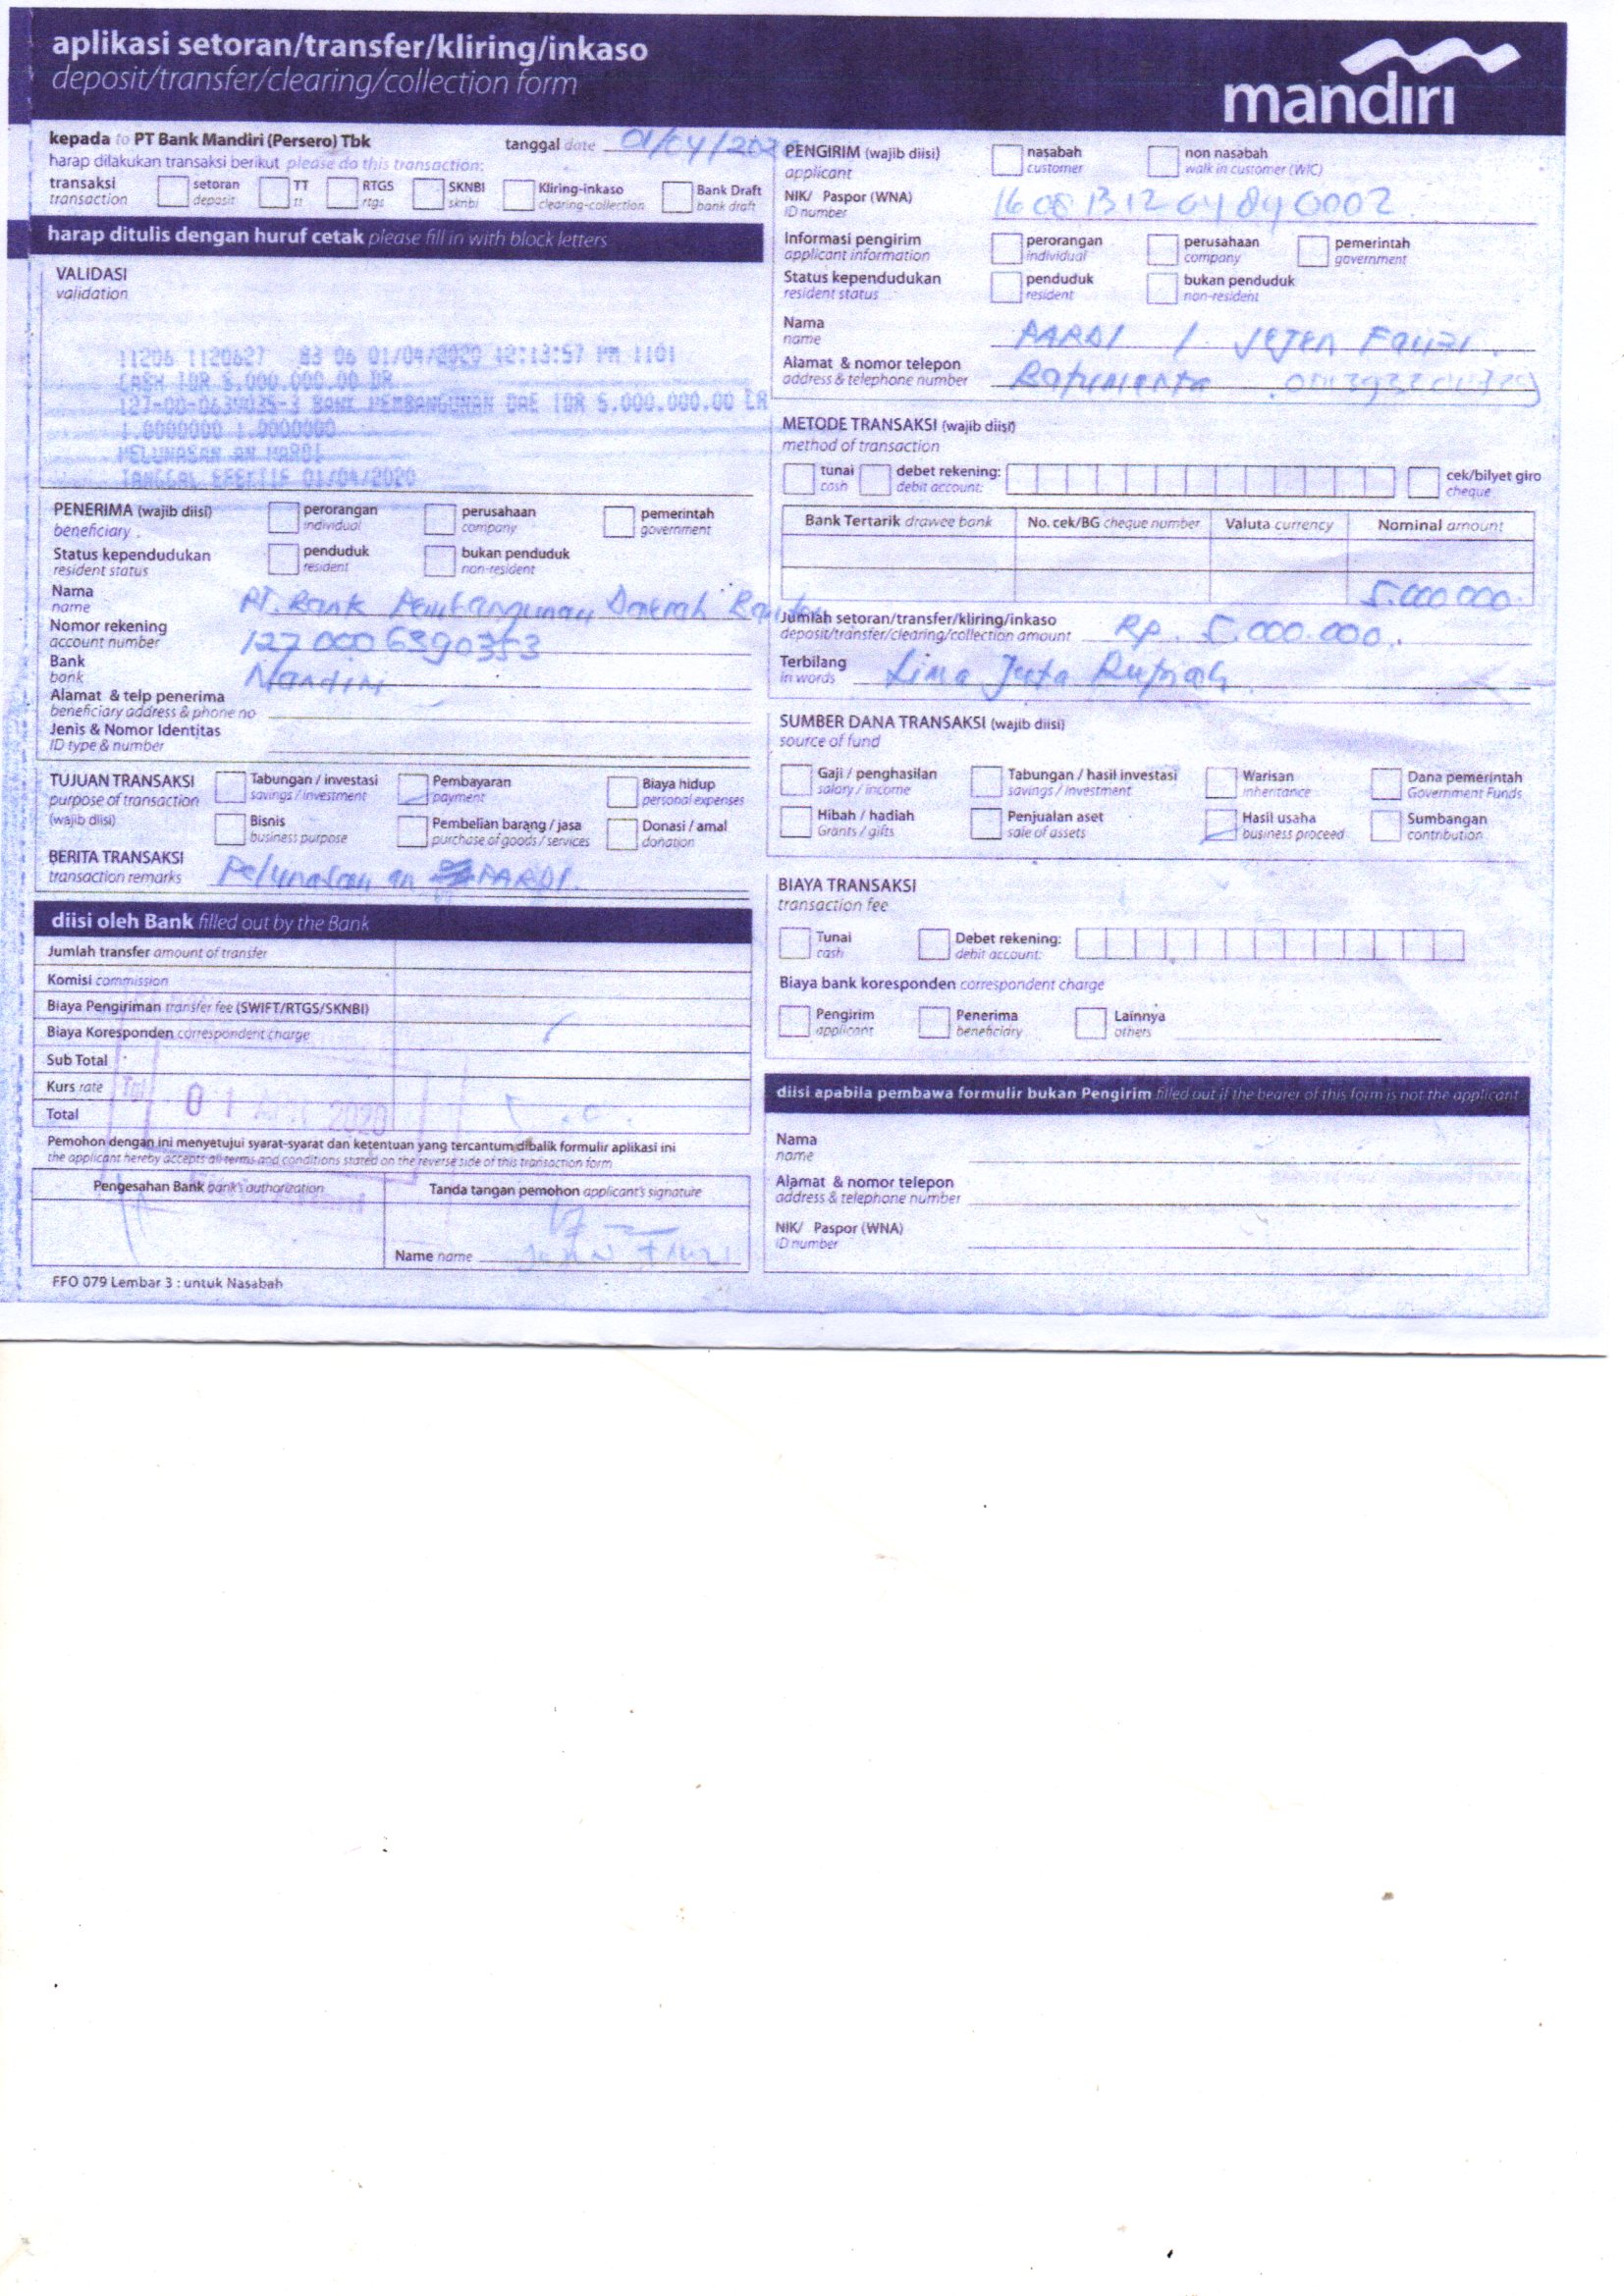 aplikasi setoran/transfer/kliring/inkaso
deposit/transfer/clearing/collection form
mandiri
kepada to PT Bank Mandiri (Persero) Tbk
tanggal date 01/04/202
harap dilakukan transaksi berikut please do this transaction:
transaksi setoran TT RTGS SKNBI Kliring-inkaso Bank Draft
transaction deposit tt rtgs sknbi clearing-collection bank draft
harap ditulis dengan huruf cetak please fill in with block letters
VALIDASI
validation
11206 1120627 83 06 01/04/2020 12:13:57 PM 1101
CASH IDR 5.000.000.00 DR
BANK PEMBANGUNAN DAE IDR 5.000.000.00
1.0000000 1.0000000
AN
TANGGAL EFEKTIF 01/04/2020
PENERIMA (wajib diisi) perorangan perusahaan pemerintah
beneficiary individual company government
Status kependudukan penduduk bukan penduduk
resident status resident non-resident
Nama PT. Bank Pembangunan Daerah
name
Nomor rekening
account number
Bank Mandiri
bank
Alamat & telp penerima
beneficiary address & phone no
Jenis & Nomor Identitas
ID type & number
TUJUAN TRANSAKSI Tabungan / investasi Pembayaran Biaya hidup
purpose of transaction savings / investment payment personal expenses
(wajib diisi) Bisnis Pembelian barang / jasa Donasi / amal
business purpose purchase of goods / services donation
BERITA TRANSAKSI
transaction remarks Pelunasan an PARDI
diisi oleh Bank filled out by the Bank
Jumlah transfer amount of transfer
Komisi commission
Biaya Pengiriman transfer fee (SWIFT/RTGS/SKNBI)
Biaya Koresponden correspondent charge
Sub Total
Kurs rate
Tgl 01 2020
Total
Pemohon dengan ini menyetujui syarat-syarat dan ketentuan yang tercantum dibalik formulir aplikasi ini
the applicant hereby accepts all terms and conditions stated on the reverse side of this transaction form
Pengesahan Bank bank's authorization Tanda tangan pemohon applicant's signature
Name name
FFO 079 Lembar 3 : untuk Nasabah
PENGIRIM (wajib diisi) nasabah non nasabah
applicant customer walk in customer (WIC)
NIK/ Paspor (WNA) 1608131204840002
ID number
Informasi pengirim perorangan perusahaan pemerintah
applicant information individual company government
Status kependudukan penduduk bukan penduduk
resident status resident non-resident
Nama PARDI / Jejen Fauzi
name
Alamat & nomor telepon
address & telephone number
METODE TRANSAKSI (wajib diisi)
method of transaction
tunai debet rekening: cek/bilyet giro
cash debit account: cheque
Bank Tertarik drawee bank No. cek/BG cheque number Valuta currency Nominal amount
5.000 000
Jumlah setoran/transfer/kliring/inkaso
deposit/transfer/clearing/collection amount Rp. 5.000.000.
Terbilang Lima Juta Rupiah
in words
SUMBER DANA TRANSAKSI (wajib diisi)
source of fund
Gaji / penghasilan Tabungan / hasil investasi Warisan Dana pemerintah
salary / income savings / investment inheritance Government Funds
Hibah / hadiah Penjualan aset Hasil usaha Sumbangan
Grants / gifts sale of assets business proceed contribution
BIAYA TRANSAKSI
transaction fee
Tunai Debet rekening:
cash debit account:
Biaya bank koresponden correspondent charge
Pengirim Penerima Lainnya
applicant beneficiary others
diisi apabila pembawa formulir bukan Pengirim filled out if the bearer of this form is not the applicant
Nama
name
Alamat & nomor telepon
address & telephone number
NIK/ Paspor (WNA)
ID number